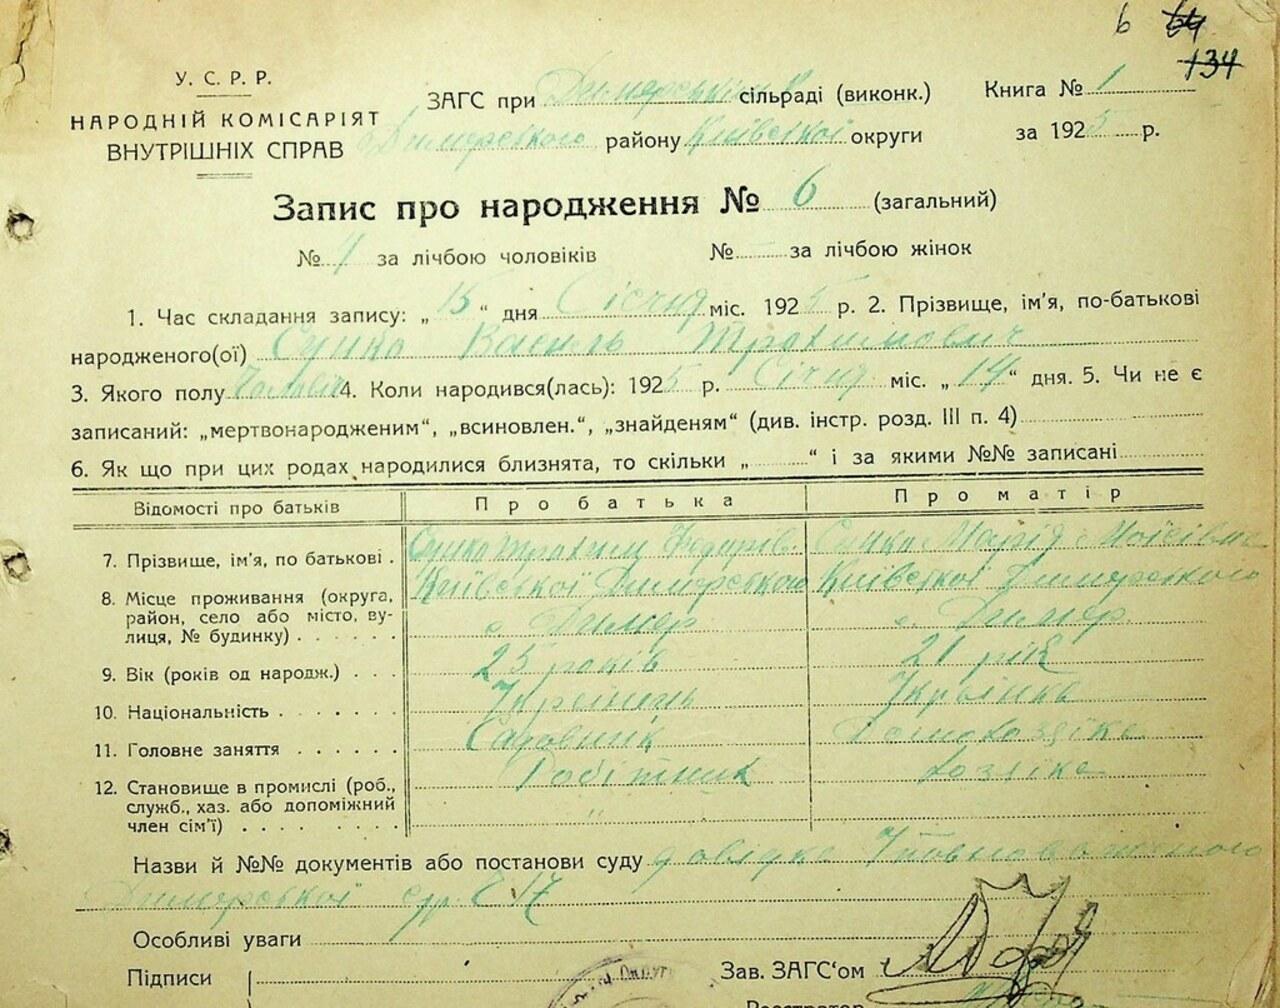 6 64
134
У. С. Р. Р.
НАРОДНІЙ КОМІСАРІЯТ
ВНУТРІШНІХ СПРАВ
ЗАГС при Димерській сільраді (виконк.)
Димерського району Київської округи
Книга № 1
за 1925 р.
Запис про народження № 6 (загальний)
№ 4 за лічбою чоловіків № за лічбою жінок
1. Час складання запису: „ 15 “ дня Січня міс. 1925 р. 2. Прізвище, ім'я, по-батькові
народженого(ої) Сушко Василь Трохимович
3. Якого полу 4. Коли народився(лась): 1925 р. Січня міс. „ 14 “ дня. 5. Чи не є
записаний: „мертвонародженим“, „всиновлен.“, „знайденям“ (див. інстр. розд. III п. 4)
6. Як що при цих родах народилися близнята, то скільки „ “ і за якими №№ записані
Відомості про батьків Про батька Про матір
7. Прізвище, ім'я, по батькові . Сушко Трохим Федорів. Сушко Марія Мойсіївна
8. Місце проживання (округа, Київської Димерського Київської Димерського
район, село або місто, ву- с. Димер с. Димер
лиця, № будинку) . . . . . .
9. Вік (років од народж.) . . . 25 років 21 рік
10. Національність . . . . . . . Українець Українка
11. Головне заняття . . . . . . Садовник Домохозяйка
12. Становище в промислі (роб., Робітник хозяйка
служб., хаз. або допоміжний "
член сім'ї) . . . . . . . .
Назви й №№ документів або постанови суду довідка Уповноваженого
Димерської с/р. № 17
Особливі уваги
Підписи Зав. ЗАГС‘ом
Реєстратор